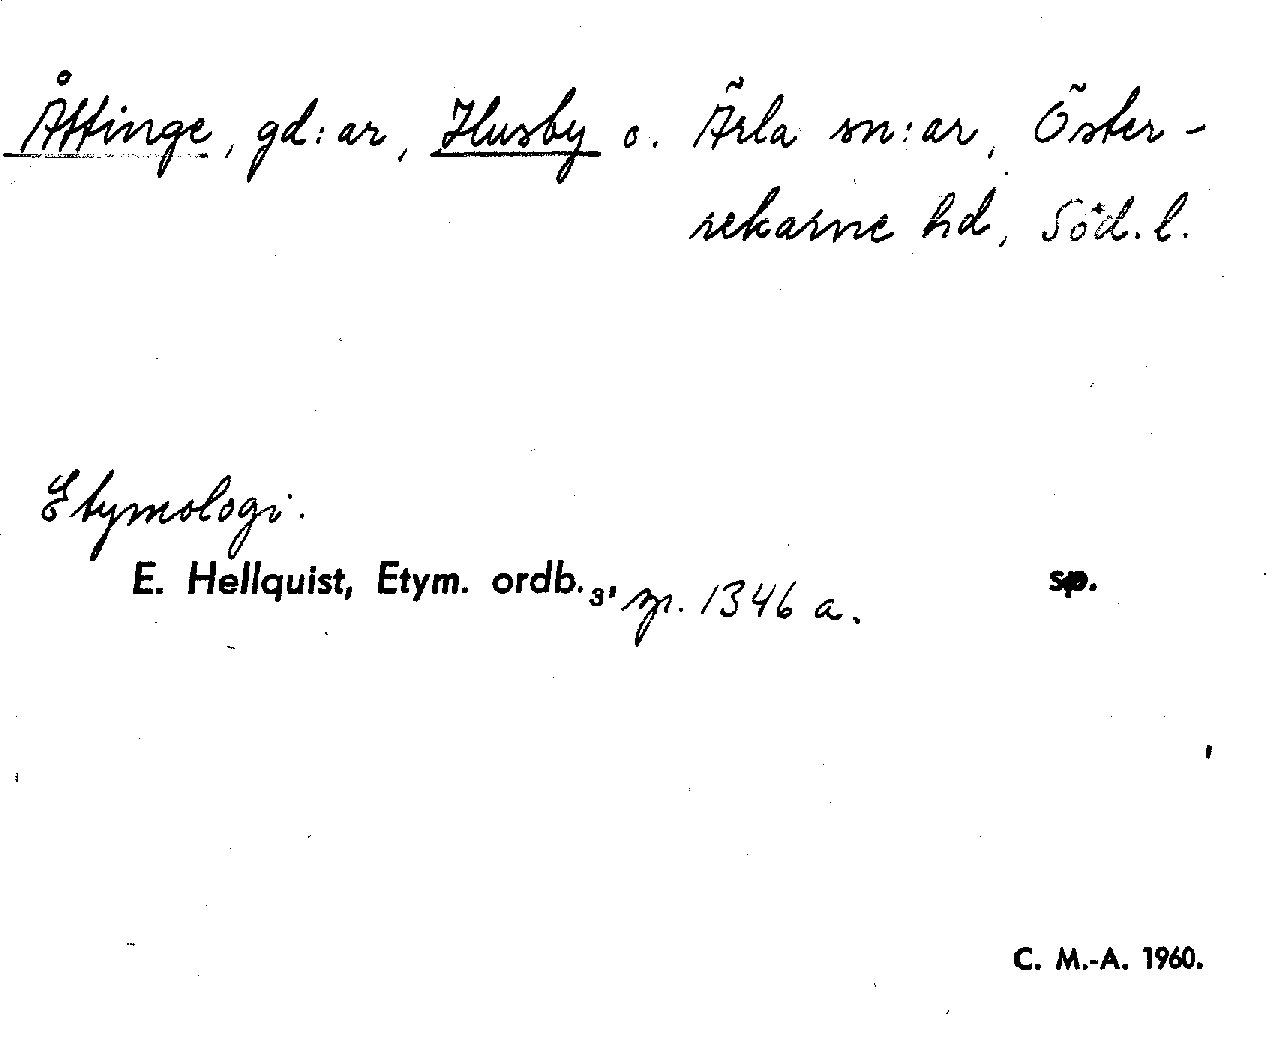 Åttinge, gd:ar, Husby o. Ärla sn:ar, Öster-
rekarne hd, Söd. l.
Etymologi.
E. Hellquist, Etym. ordb.₃, sp. 1346 a. sp.
C. M.-A. 1960.